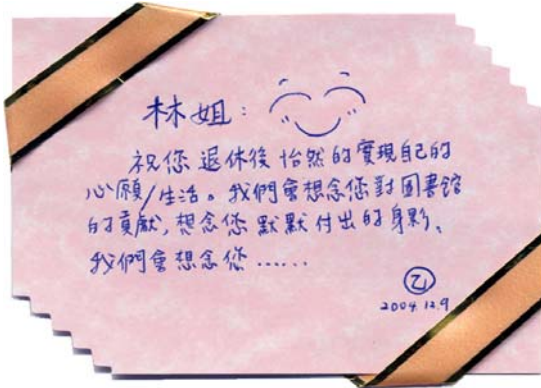 林姐：
祝您退休後怡然的實現自己的
心願/生活。我們會想念您對圖書館
的貢獻，想念您默默付出的身影。
我們會想念您……
乙
2004.12.9